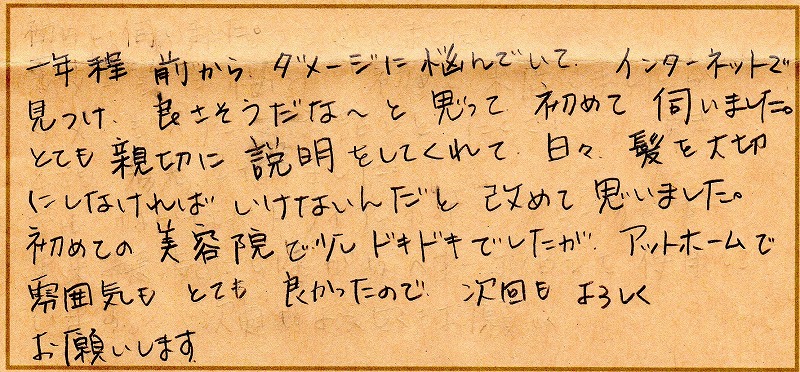 一年程前から、ダメージに悩んでいて、インターネットで
見つけ、良さそうだな～と思って初めて伺いました。
とても親切に説明をしてくれて、日々、髪を大切
にしなければいけないんだと改めて思いました。
初めての美容院で少しドキドキでしたが、アットホームで
雰囲気もとても良かったので、次回もよろしく
お願いします